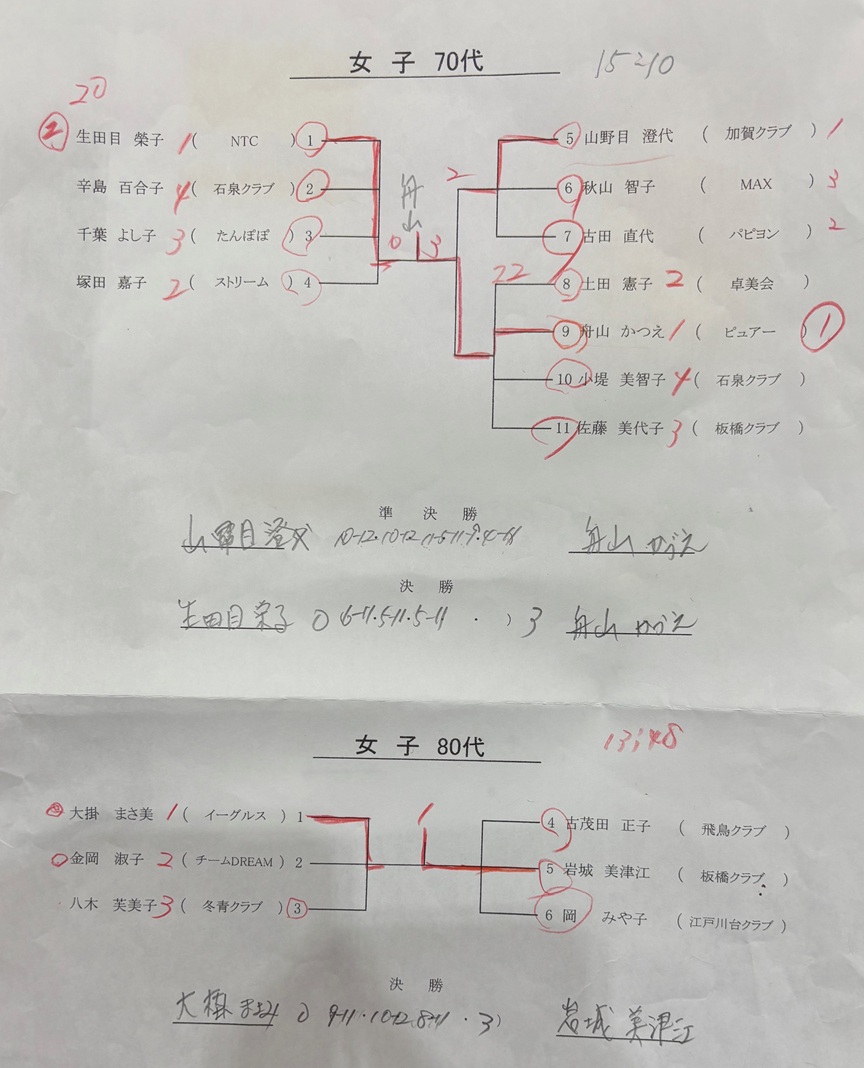 女子 70代 15:10
20
② 生田目 榮子 1 ( NTC ) 1
辛島 百合子 4 ( 石泉クラブ ) 2
千葉 よし子 3 ( たんぽぽ ) 3
塚田 嘉子 2 ( ストリーム ) 4
舟山
0 3
2
22
5 山野目 澄代 ( 加賀クラブ ) 1
6 秋山 智子 ( MAX ) 3
7 古田 直代 ( パピヨン ) 2
8 土田 憲子 2 ( 卓美会 )
9 舟山 かつえ 1 ( ピュアー ) ①
10 小堤 美智子 4 ( 石泉クラブ )
11 佐藤 美代子 3 ( 板橋クラブ )
準決勝
山野目 澄代 10-12・10-12 舟山 かつえ
決勝
生田目 栄子 0 6-11・5-11・5-11 ・ ) 3 舟山 かつえ
女子 80代 13:48
大掛 まさ美 1 ( イーグルス ) 1
金岡 淑子 2 ( チームDREAM ) 2
八木 芙美子 3 ( 冬青クラブ ) 3
1
4 古茂田 正子 ( 飛鳥クラブ )
5 岩城 美津江 ( 板橋クラブ )
6 岡 みや子 ( 江戸川台クラブ )
決勝
大掛 まさみ 0 9-11・10-12・8-11 ・ 3) 岩城 美津江